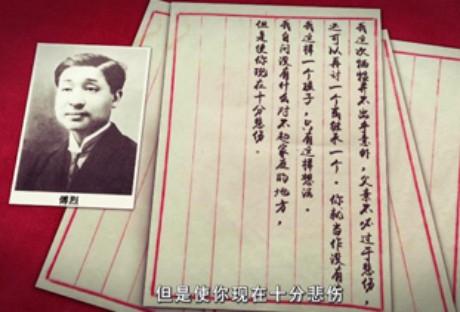 我这次牺牲并不出乎意外，父亲不必过于悲伤，
还可以再讨一个 继来一个。你就当作没有
我这样一个孩子，只有这样想法。
我自问没有什么对不起家庭的地方，
但是使你现在十分悲伤。
傅烈
但是使你现在十分悲伤